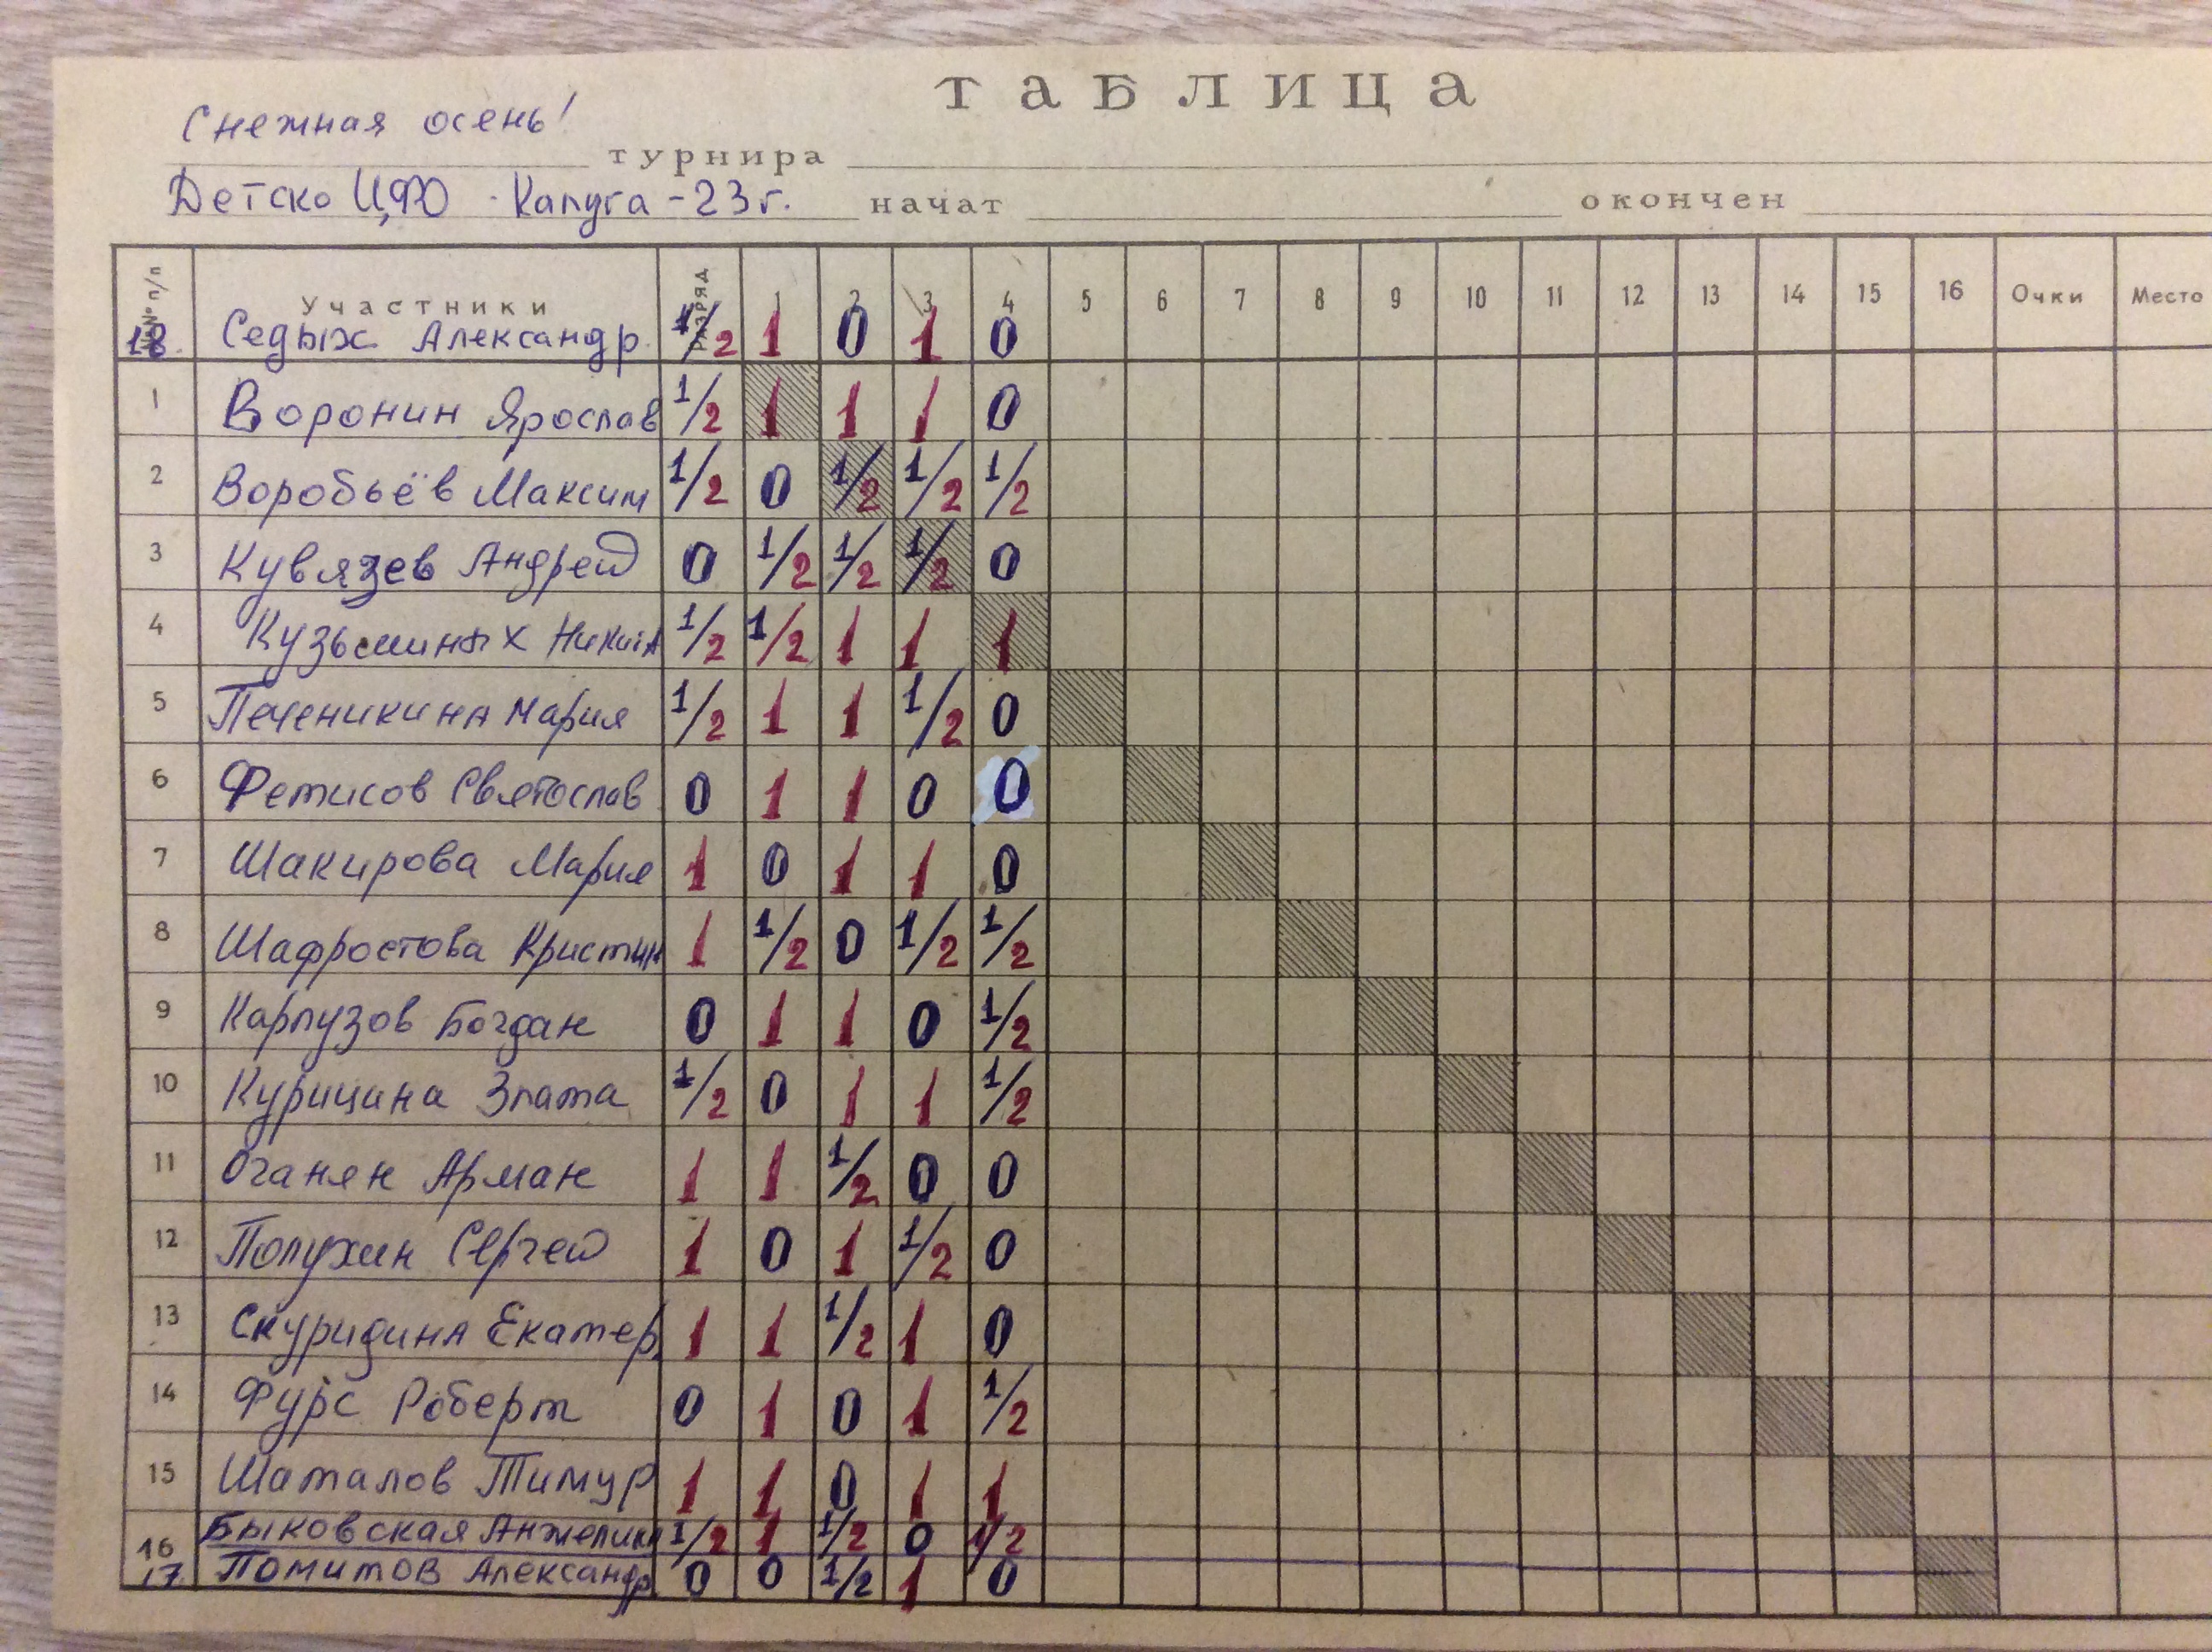 ТАБЛИЦА
Снежная осень!
турнира
Детско ЦФО - Калуга - 23 г. начат окончен
№№ п/п Участники РАЗРЯД 1 2 3 4 5 6 7 8 9 10 11 12 13 14 15 16 Очки Место
18. Седых Александр. 1/2 1 0 1 0
1 Воронин Ярослав 1/2 1 1 1 0
2 Воробьёв Максим 1/2 0 1/2 1/2 1/2
3 Кувязев Андрей 0 1/2 1/2 1/2 0
4 Кузьминых Никита 1/2 1/2 1 1 1
5 Печеникина Мария 1/2 1 1 1/2 0
6 Фетисов Святослав 0 1 1 0 0
7 Шакирова Мария 1 0 1 1 0
8 Шафростова Кристин 1 1/2 0 1/2 1/2
9 Карпузов Богдан 0 1 1 0 1/2
10 Курицина Злата 1/2 0 1 1 1/2
11 Оганян Арман 1 1 1/2 0 0
12 Полухин Сергей 1 0 1 1/2 0
13 Скуридина Екатер. 1 1 1/2 1 0
14 Фурс Роберт 0 1 0 1 1/2
15 Шаталов Тимур 1 1 0 1 1
16 Быковская Анжелика 1/2 1 1/2 0 1/2
17 Помитов Александр 0 0 1/2 1 0